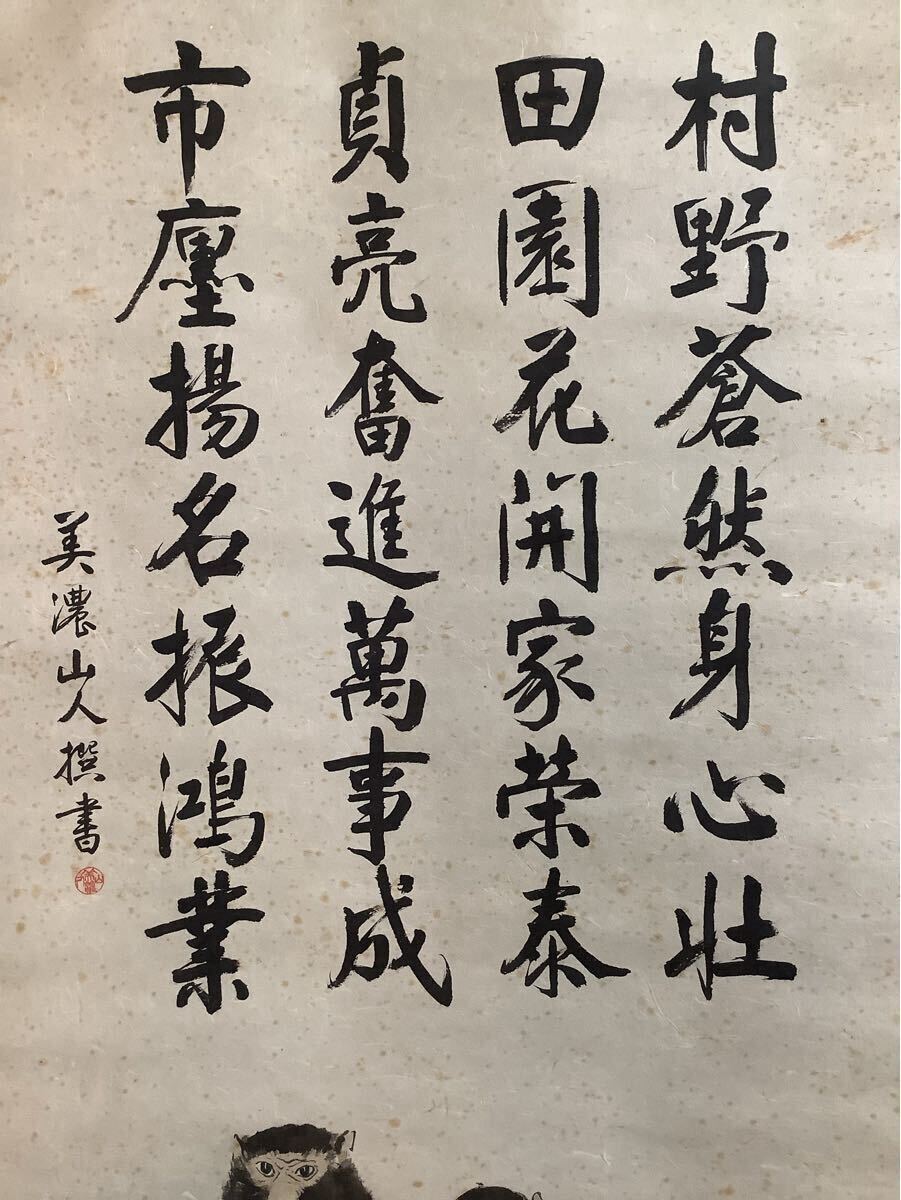 村野蒼然身心壮
田園花開家栄泰
貞亮奮進萬事成
市廛揚名振鴻業
美濃山人撰書